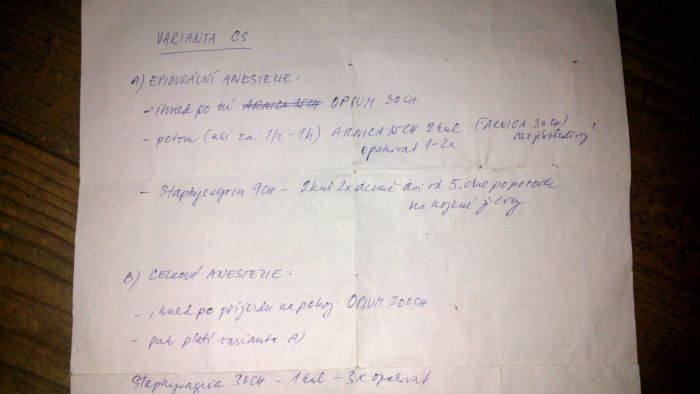 VARIANTA CS
A) EPIDURÁLNÍ ANESTEZIE:
- ihned po ní ARNICA 15CH OPIUM 30CH
- potom (asi za 1/2-1h) ARNICA 15CH 2kul (ARNICA 30CH)
opakovat 1-2x
- Staphysagria 9CH - 2kul 2x denně asi od 5. dne po porodu
na hojení jizvy
B) CELKOVÁ ANESTEZIE:
- ihned po příjezdu na pokoj OPIUM 200CH
- pak platí varianta A)
Staphysagria 30CH - 1kul - 3x opakovat